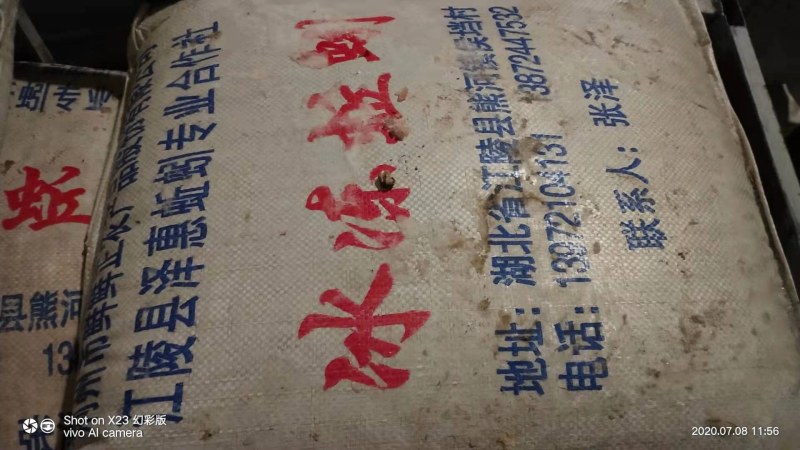 江陵县泽惠蚯蚓专业合作社
冰冻
地址：湖北省江陵县熊河镇吴垱村
电话：13972104131 13872447532
联系人：张泽
县熊河
13
张
Shot on X23 幻彩版
vivo AI camera
2020.07.08 11:56